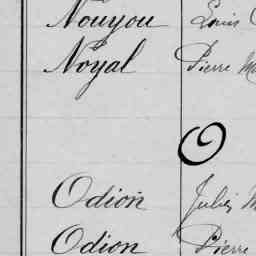 Nouyou Louis
Noyal Pierre M
O
Odion Jules M
Odion Pierre